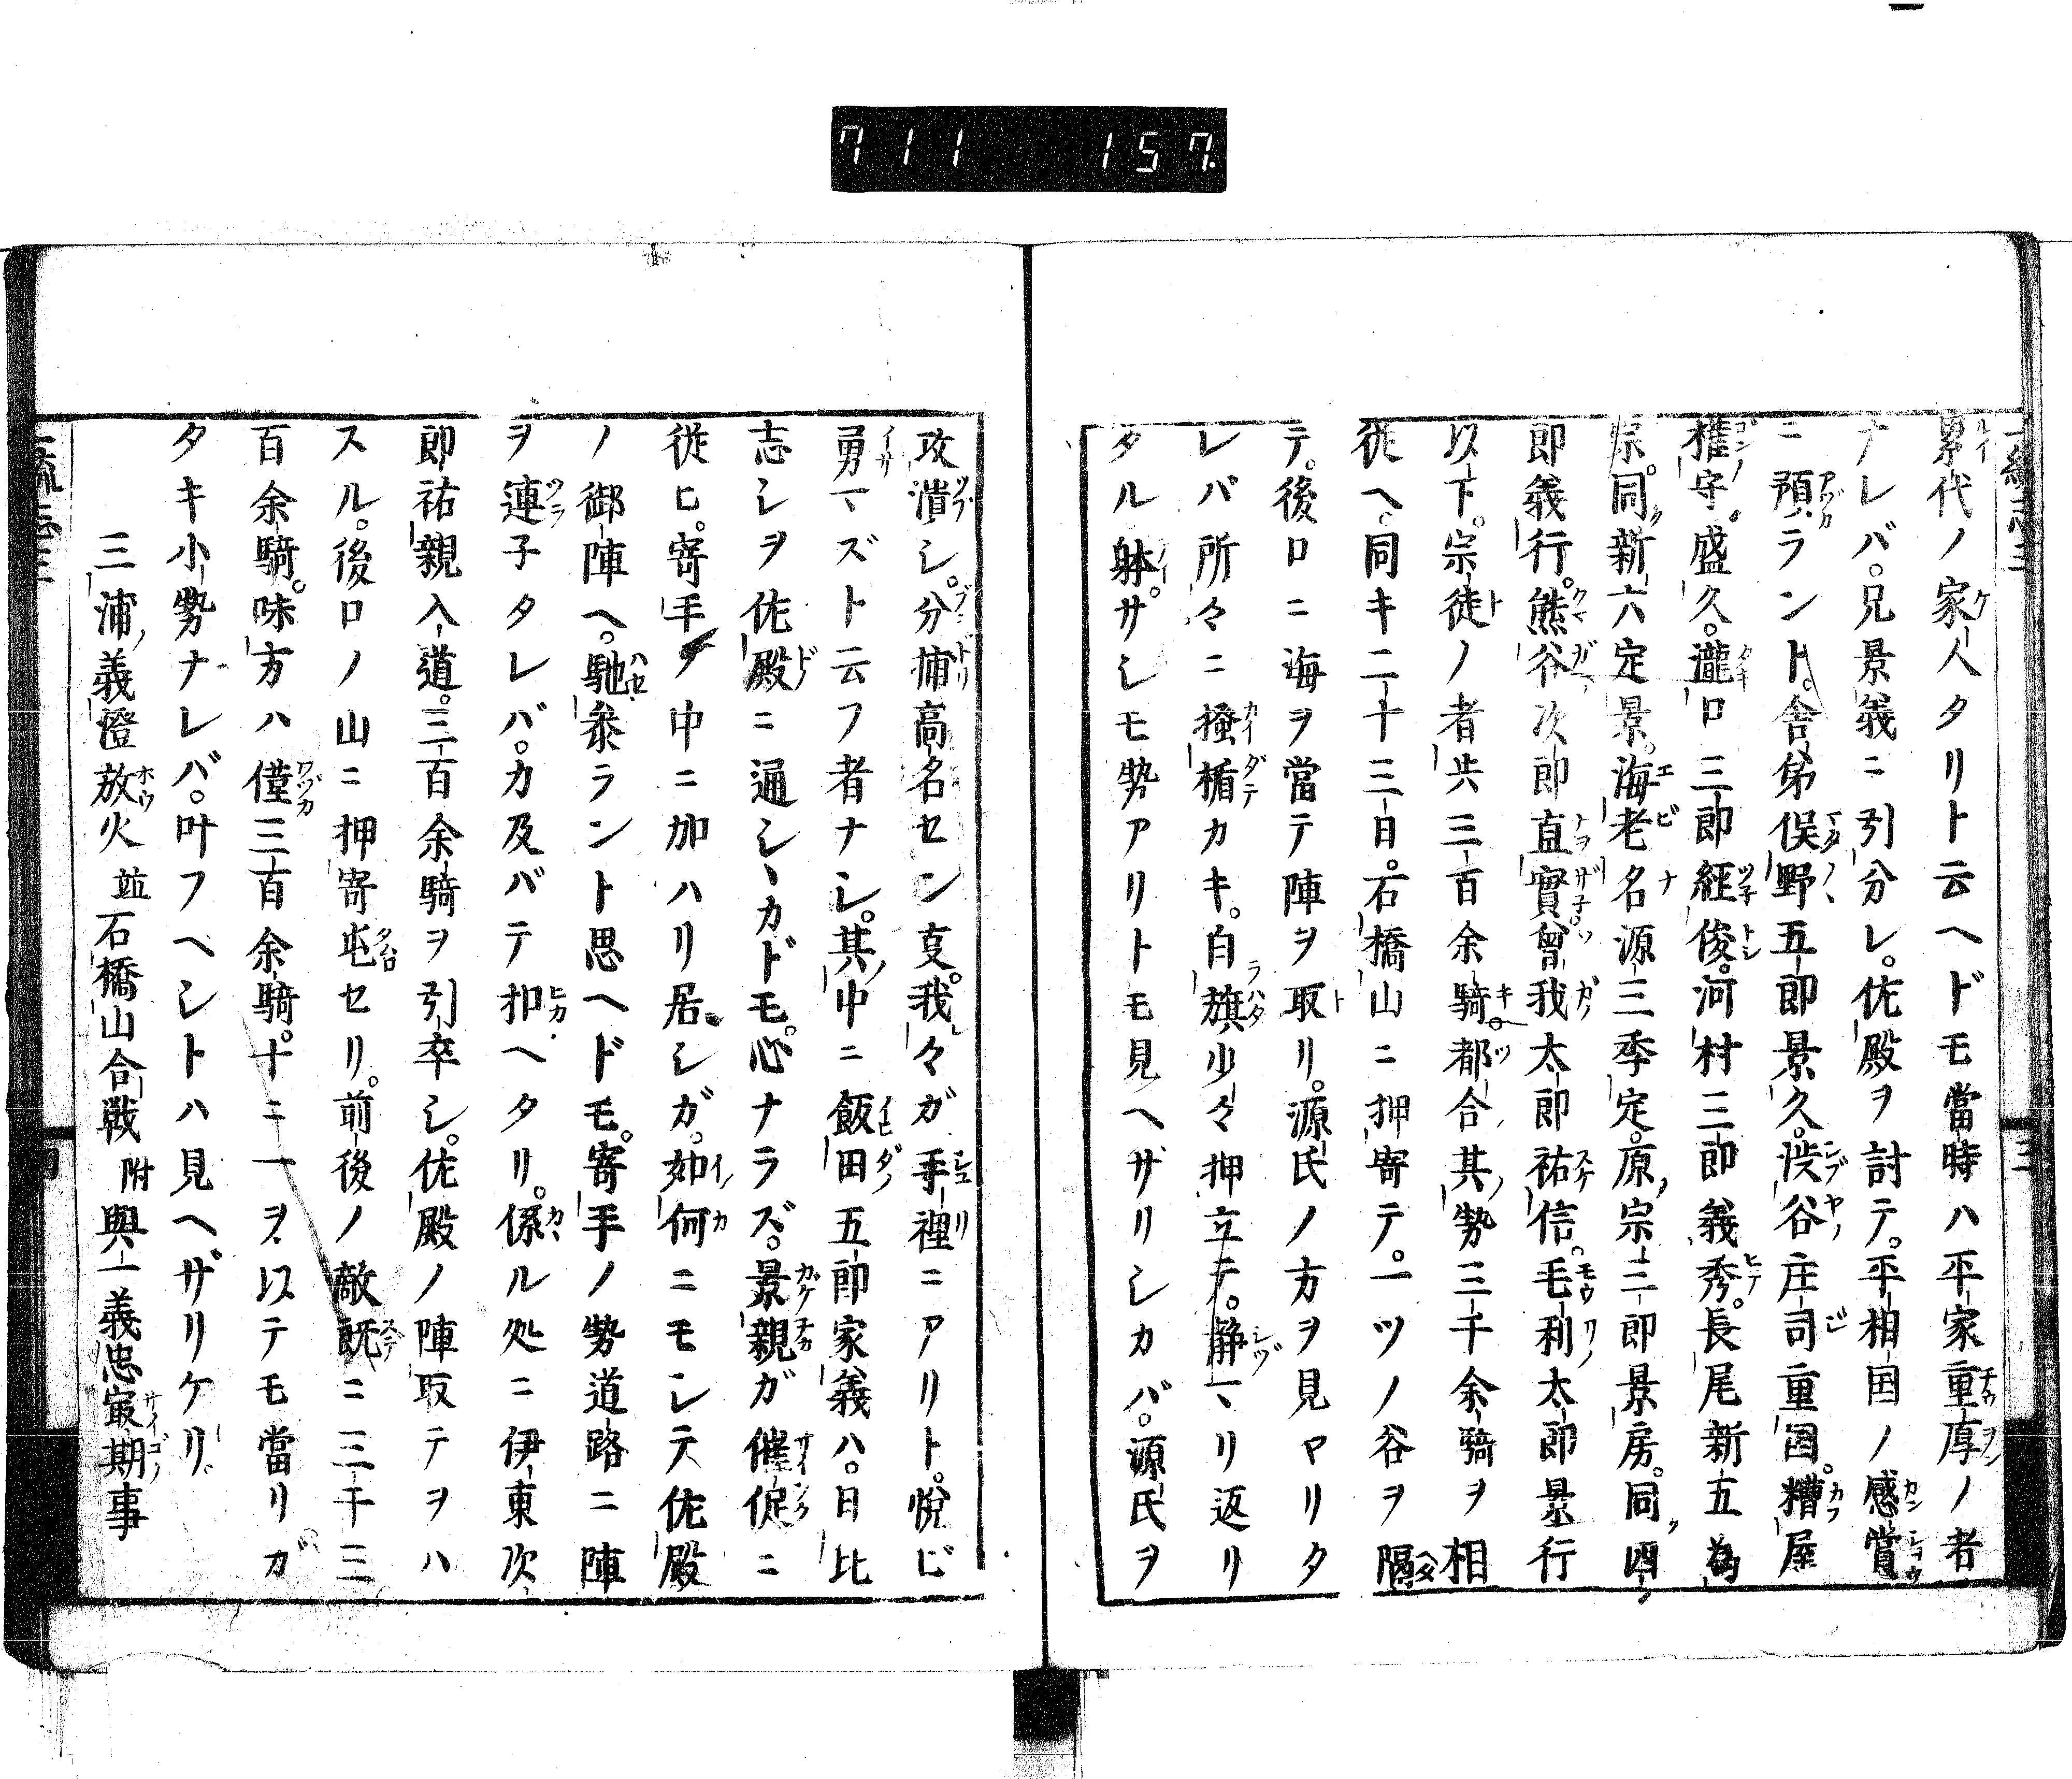 711 157
累代ノ家人タリト云ヘドモ當時ハ平家重厚ノ者
ナレバ。兄景義ニ引分レ。佐殿ヲ討テ。平相国ノ感賞
ニ預ラント。舎弟俣野五郎景久。渋谷庄司重国。糟屋
権守盛久。瀧口三郎経俊。河村三郎義秀。長尾新五為
宗。同新六定景。海老名源三季定。原宗三郎景房。同四
郎義行。熊谷次郎直實。曾我太郎祐信。毛利太郎景行
以下。宗徒ノ者共三百余騎。都合其勢三千余騎ヲ相
従ヘ。同キ二十三日。石橋山ニ押寄テ。一ツノ谷ヲ隔
テ。後ロニ海ヲ當テ陣ヲ取リ。源氏ノ方ヲ見ヤリタ
レバ所々ニ掻楯カキ。白旗少々押立テ。静マリ返リ
タル躰。サシモ勢アリトモ見ヘザリシカバ。源氏ヲ
攻潰シ。分捕高名セン支。我々ガ手裡ニアリト。悦ビ
勇マズト云フ者ナシ。其中ニ飯田五郎家義ハ。日比
志シヲ佐殿ニ通シヽカドモ。心ナラズ。景親ガ催促ニ
従ヒ。寄手ノ中ニ加ハリ居シガ。如何ニモシテ佐殿
ノ御陣ヘ。馳参ラント思ヘドモ。寄手ノ勢道路ニ陣
ヲ連子タレバ。力及バテ扣ヘタリ。係ル処ニ伊東次
郎祐親入道。三百余騎ヲ引卒シ。佐殿ノ陣取テヲハ
スル。後ロノ山ニ押寄屯セリ。前後ノ敵既ニ三千三
百余騎。味方ハ僅三百余騎。十ニ一ヲ以テモ當リガ
タキ小勢ナレバ。叶フヘシトハ見ヘザリケリ
三浦義澄放火並石橋山合戦附與一義忠㝡期事